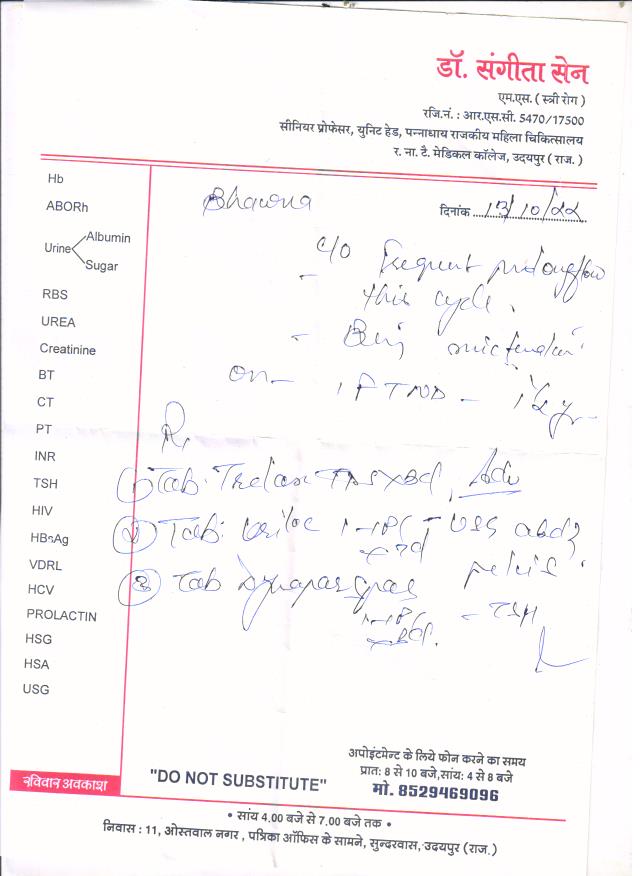 डॉ. संगीता सेन
एम.एस. ( स्त्री रोग )
रजि.नं. : आर.एस.सी. 5470/17500
सीनियर प्रोफेसर, युनिट हेड, पन्नाधाय राजकीय महिला चिकित्सालय
र. ना. टै. मेडिकल कॉलेज, उदयपुर ( राज. )
Hb
ABORh
Urine Albumin
Sugar
RBS
UREA
Creatinine
BT
CT
PT
INR
TSH
HIV
HBsAg
VDRL
HCV
PROLACTIN
HSG
HSA
USG
Bhawna
दिनांक 13/10/22
c/o frequent
this cycle.
on
1 FTND -
Rx
1 Tab. Adv
2 Tab. - USG abd &
pelvis.
3 Tab
- TSH
रविवार अवकाश
"DO NOT SUBSTITUTE"
अपोइंटमेन्ट के लिये फोन करने का समय
प्रात: 8 से 10 बजे, सांय: 4 से 8 बजे
मो. 8529469096
• सांय 4.00 बजे से 7.00 बजे तक •
निवास : 11, ओस्तवाल नगर , पत्रिका ऑफिस के सामने, सुन्दरवास, उदयपुर (राज.)